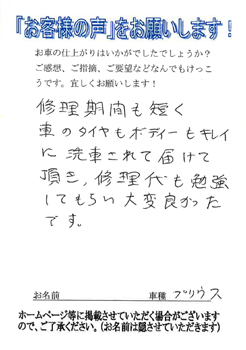 「お客様の声」をお願いします！
お車の仕上がりはいかがでしたでしょうか？
ご感想、ご指摘、ご要望などなんでもけっこ
うです。宜しくお願いします！
修理期間も短く
車のタイヤもボディーもキレイ
に洗車されて届けて
頂き、修理代も勉強
してもらい大変良かった
です。
お名前 車種 プリウス
ホームページ等に掲載させていただく場合がございます
ので、ご了承ください。（お名前は隠させていただきます）